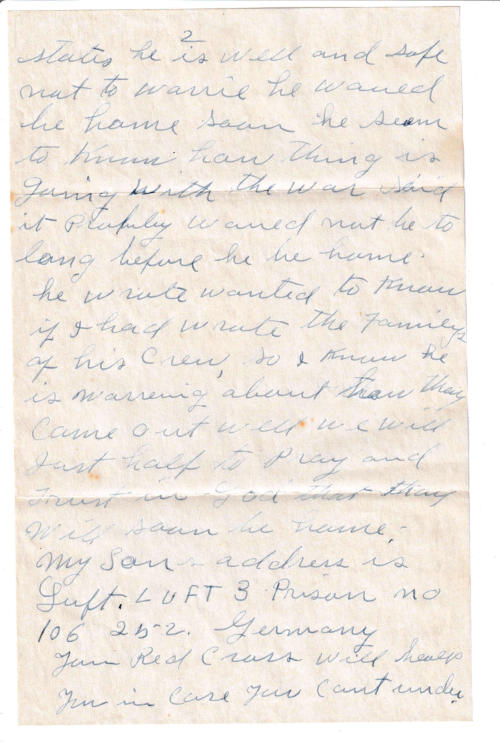 2
states he is well and safe
not to warrie he woued
be home soon he seem
to Know how thing is
going with the war said
it Probuley woued not be to
long before he be home.
he wrote wanted to Know
if I had wrote the Familys
of his Crew, so I Know he
is warreing about how they
Came out well we will
Just half to Pray and
trust in God that they
Will soon be home.
My Son - address is
Luft. LUFT 3 Prison no
106 252. Germany
Your Red Cross will
You in Case You Cant under